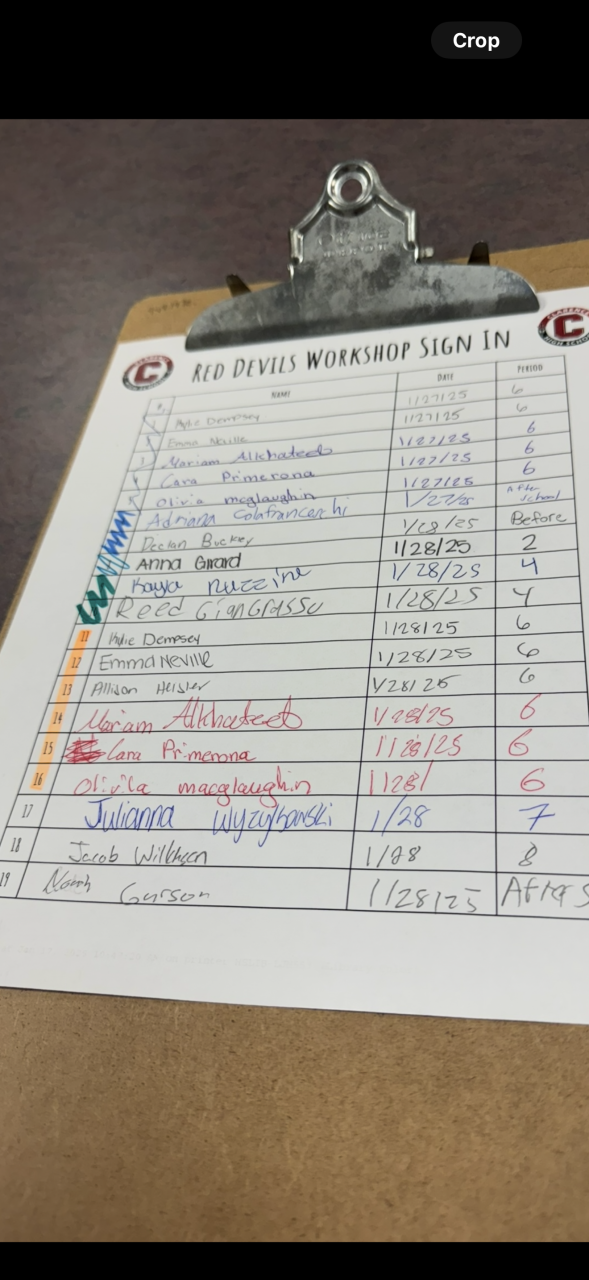 Crop
RED DEVILS WORKSHOP SIGN IN
NAME DATE PERIOD
1 Kylie Dempsey 1/27/25 6
2 Emma Neville 1/27/25 6
3 Mariam Alkhateeb 1/27/25 6
4 Cara Primerona 1/27/25 6
5 Olivia mcglaughin 1/27/25 6
Adriana Colafranceschi 1/27/25 After school
Declan Buckley 1/28/25 Before
Anna Girard 1/28/25 2
Kaya 1/28/25 4
Reed Giangrasso 1/28/25 4
11 Kylie Dempsey 1/28/25 6
12 Emma Neville 1/28/25 6
13 Allison Heisler 1/28/25 6
14 Mariam Alkhateeb 1/28/25 6
15 Cara Primerona 1/28/25 6
16 Olivia macglaughin 1/28/ 6
17 Julianna Wyzykowski 1/28 7
18 Jacob 1/28 8
19 Noah 1/28/25 After s